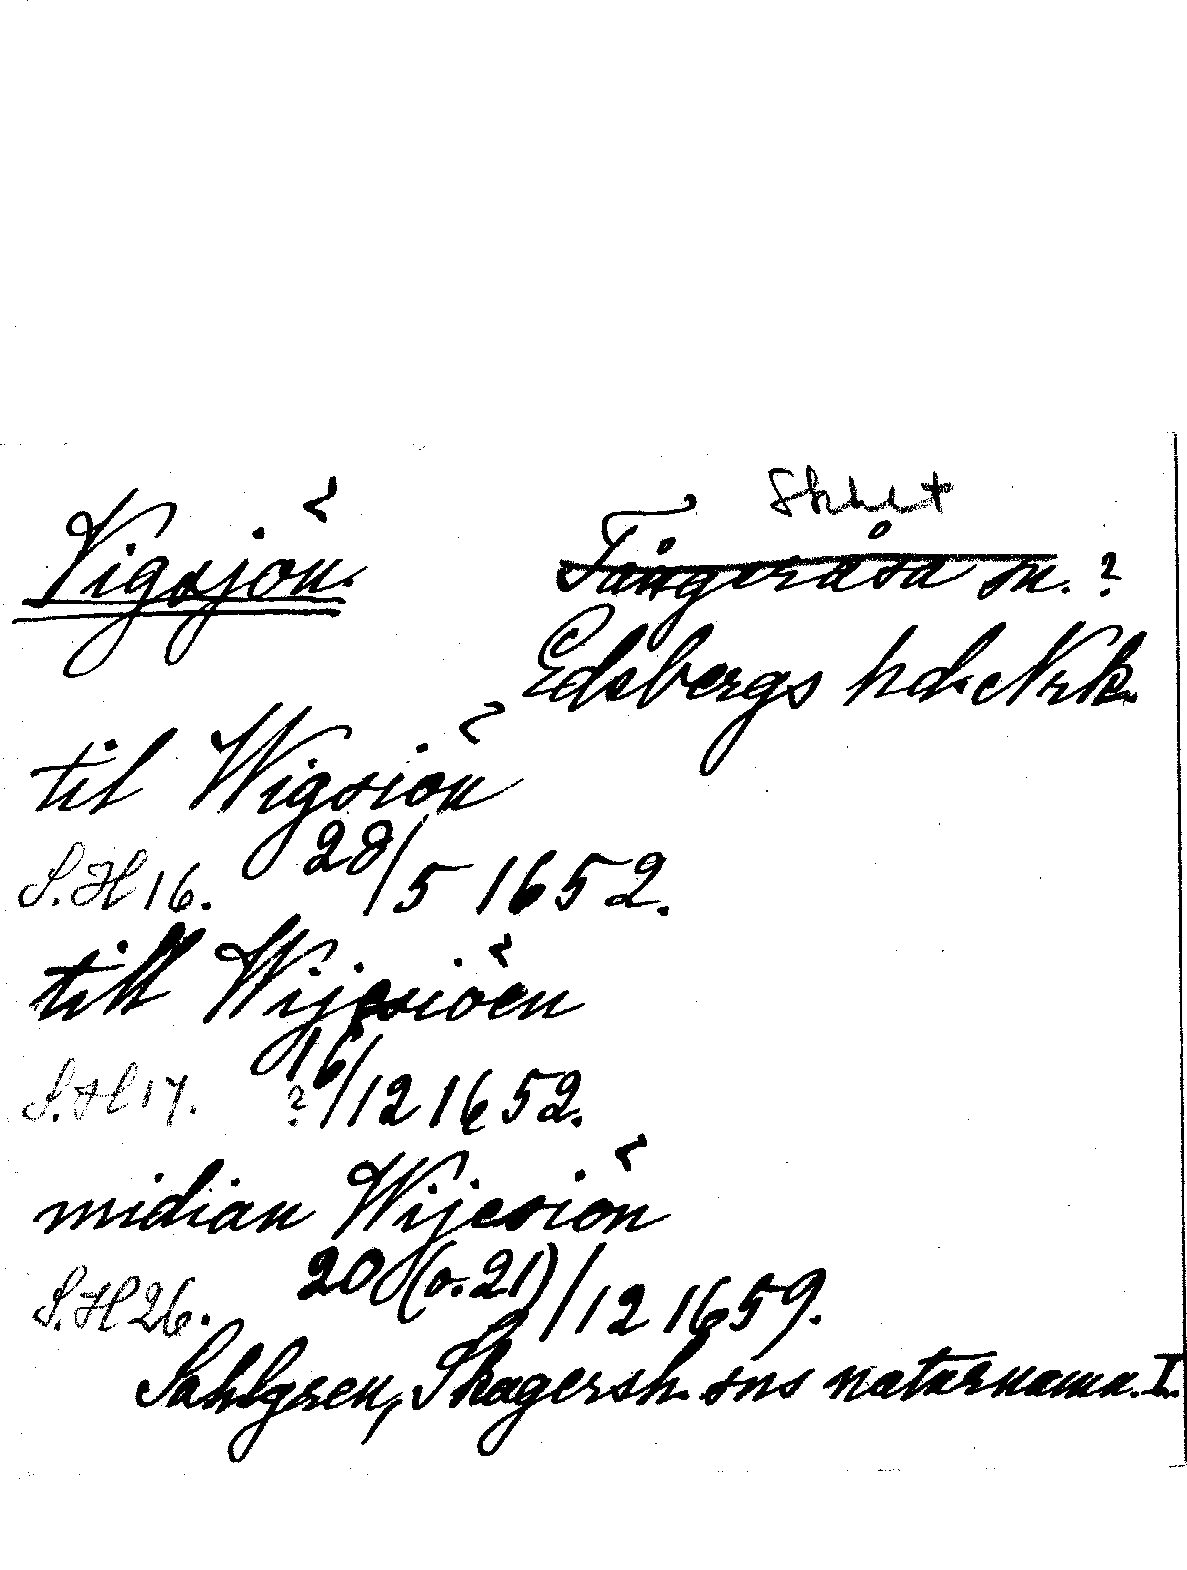 Vigsjön.
Skht
Tångeråsa sn. ?
Edsbergs hd. Nrk.
til Wigsiön
S.H 16. 28/5 1652.
till Wijesiöen
S.H 17. ? 16/12 1652.
midian Wijesiön
S.H 26. 20 (o. 21)/12 1659.
Sahlgren, Skagersh. sns naturnamn. I.